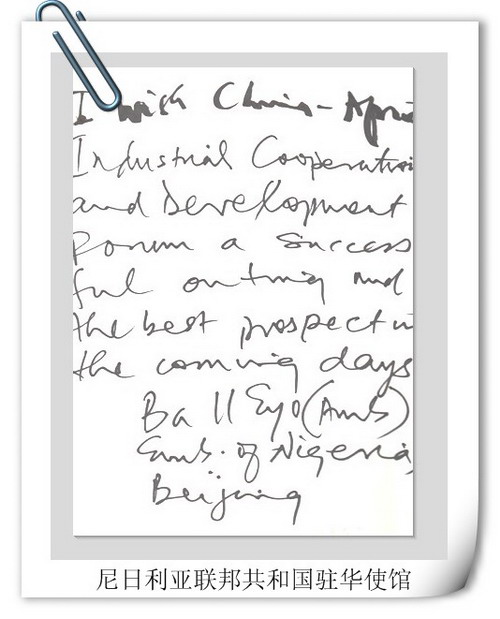 I wish China - Afri
Industrial Cooperation
and Development
Forum a Success
ful outing and
the best prospect in
the coming days
Ball Eyo (Amb)
Emb. of Nigeria,
Beijing
尼日利亚联邦共和国驻华使馆